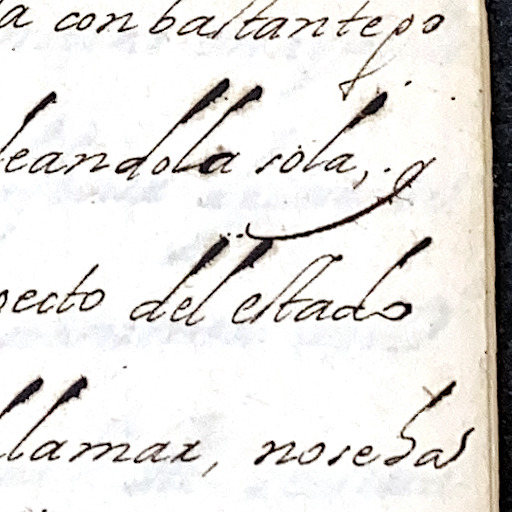 a con bastante po
leandola sola, q
pecto del estado
llamar, nosedas